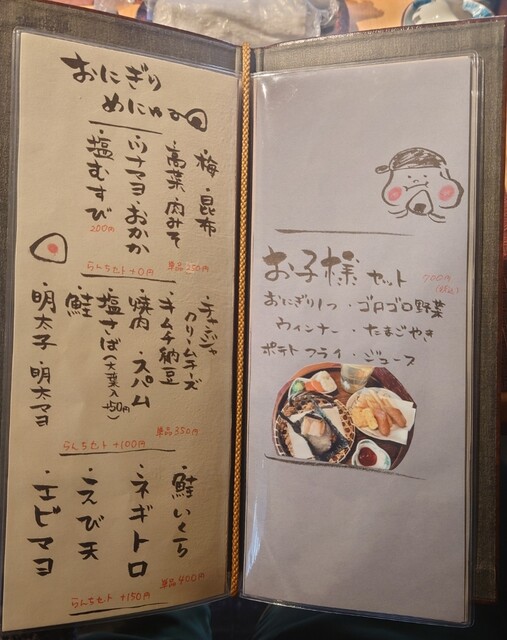 おにぎり
めにゅう
・梅 ・昆布
・高菜 ・肉みそ
・ツナマヨ ・おかか
・塩むすび
200円
単品250円
らんちセット +0円
・チャンジャ
クリームチーズ
・キムチ納豆
・焼肉 ・スパム
・塩さば(大葉入り+50円)
・鮭
・明太子 ・明太マヨ
単品350円
らんちセット +100円
・鮭いくら
・ネギトロ
・えび天
・エビマヨ
単品400円
らんちセット +150円
お子様セット 700円
(税込)
おにぎり1つ・ゴロゴロ野菜
ウィンナー・たまごやき
ポテトフライ・ジュース